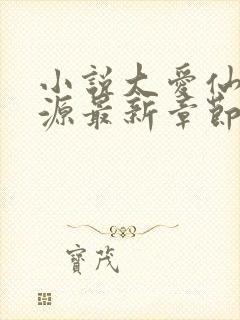 小說太愛仙
源最新章節
寶茂